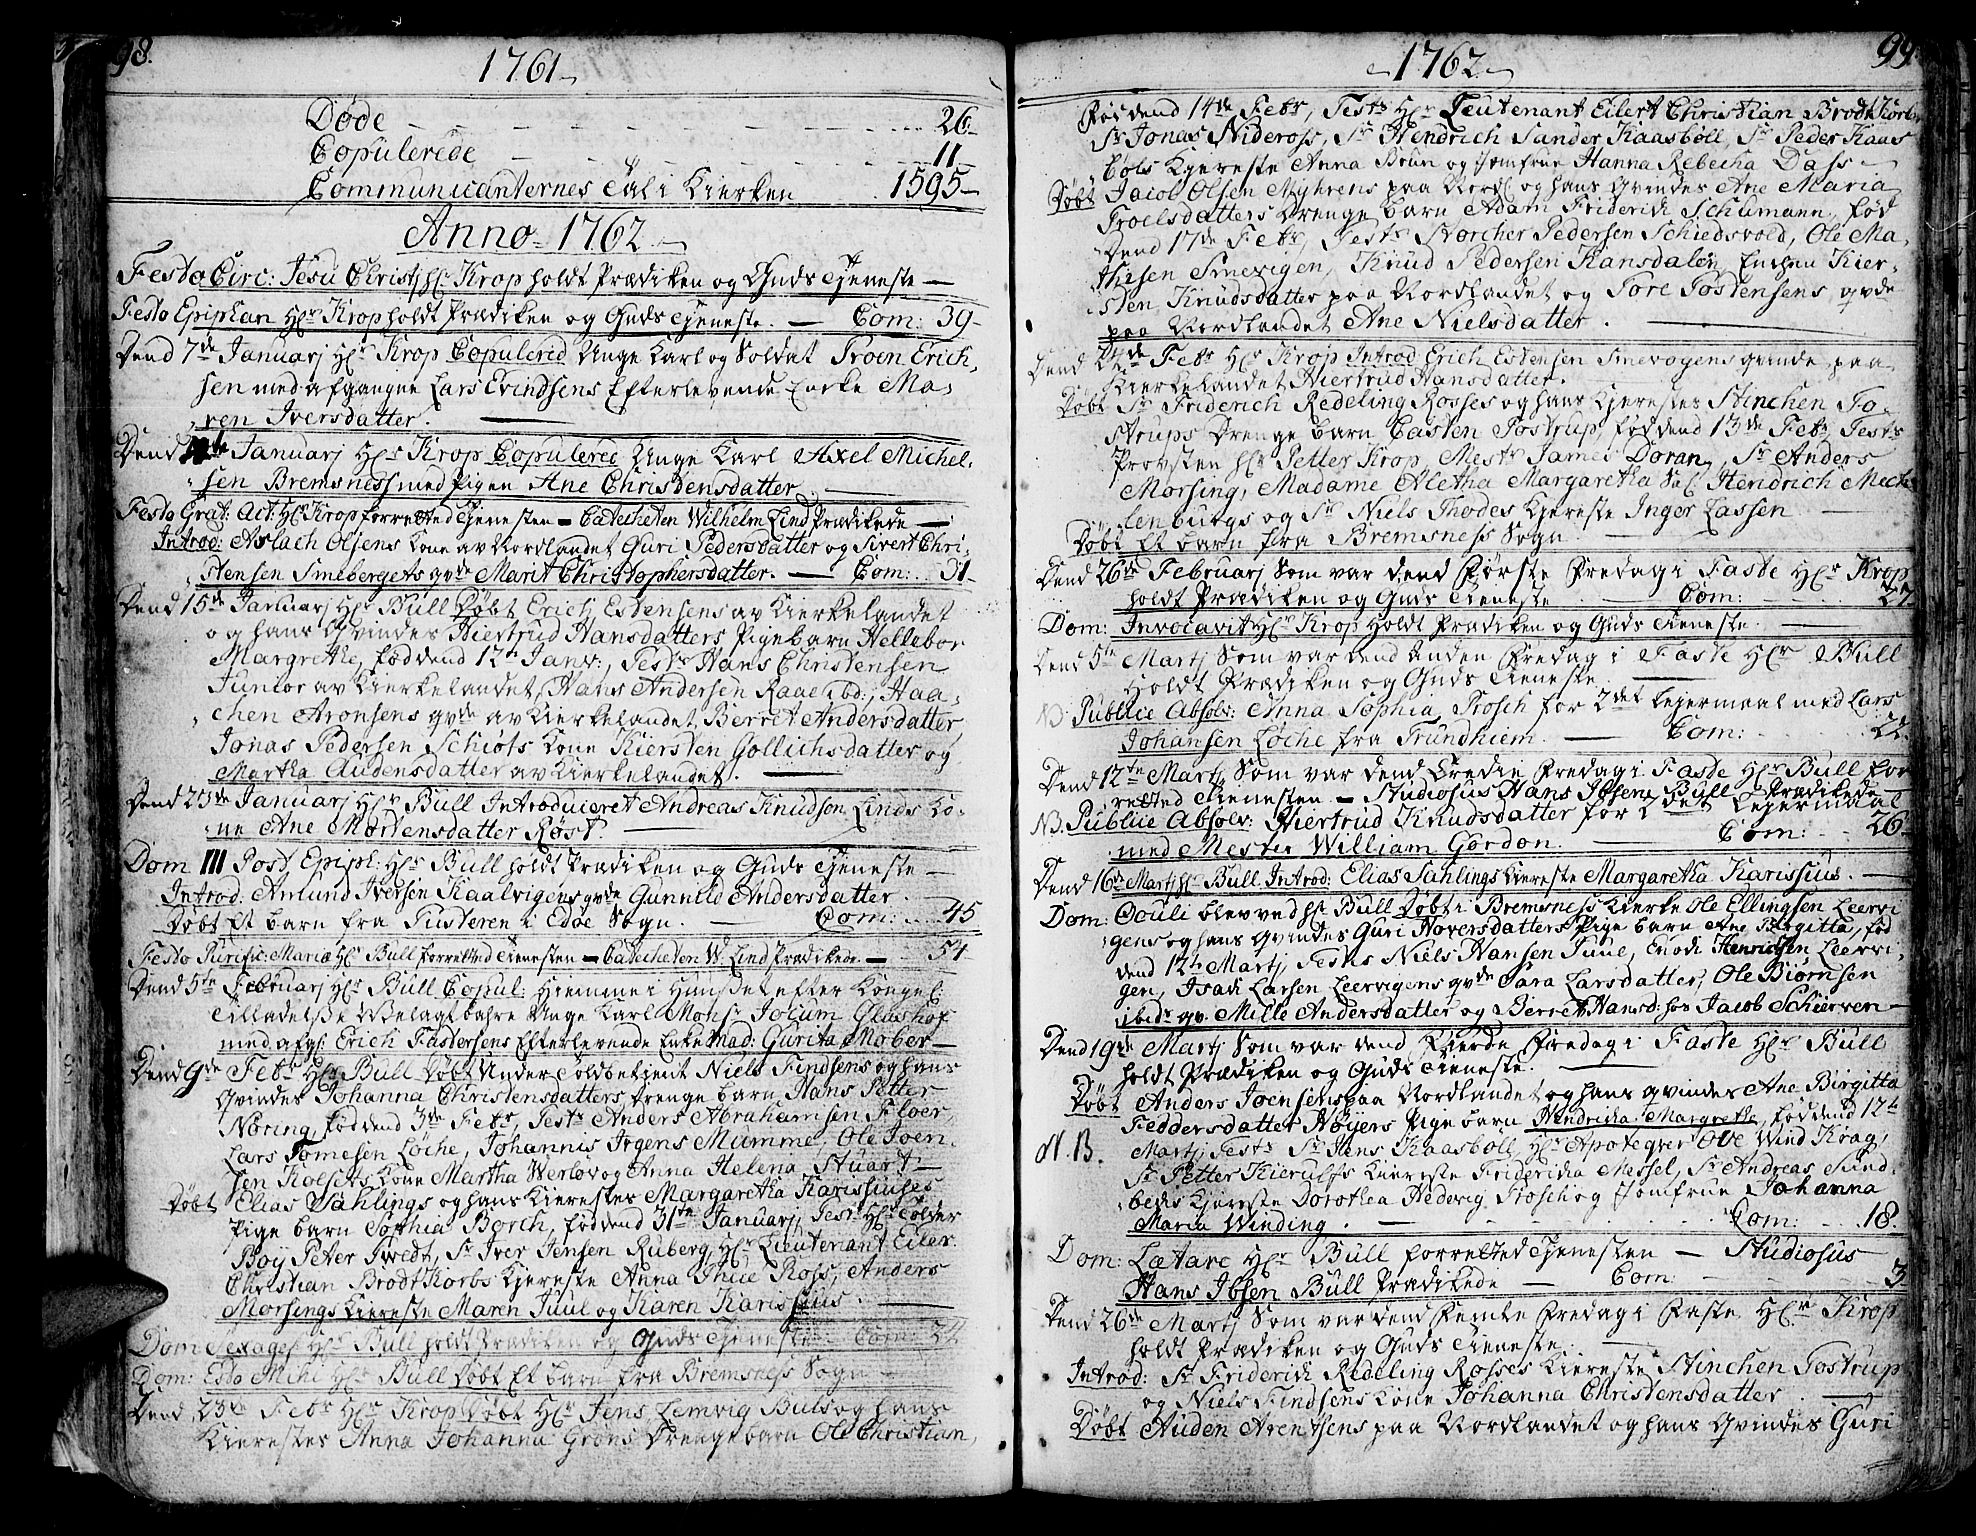 98.
1761
Døde 26
Copulerede 11
Communicanternes Tal i Kierken 1595
Anno 1762
Festo Circ: Jesu Christi Hr Krop holdt Prædiken og Guds Tjeneste
Festo Epiphan Hr Krop holdt Prædiken og Guds Tjeneste. Com: 39
Dend 7de Januarj Hr Krop Copulered Unge Karl og Soldat Troen Erich,
sen med afgangne Lars Evindsens Efterlevende Encke Ma,
ren Iversdatter.
Dend Januarj Hr Krop Copulered Unge Karl Axel Michel,
sen Bremsness med Pigen Ane Christensdatter
Festo Grat: Act: Hr Krop forretted Tjenesten - Catecheten Wilhelm Lind Prædikede
Introd: Aslach Olsens Kone av Nordlandet Guri Pedersdatter og Sivert Chri,
stensen Smebergets qvde Marit Christophersdatter. Com: 31
Dend 15de Januarj Hr Bull Døbt Erich Estensens av Kierkelandet
og hans Qvindes Hiertrud Hansdatters Pige barn Hellebor
Margrethe, fød dend 12te Janv:, Testr Hans Christensen
Junior av Kierkelandet, Hans Andersen Raae ibd:, Haa,
chen Aronsens qvde av Kierkelandet, Berret Andersdatter
Jonas Pedersen Schiøts Kone Kiersten Gollichsdatter og
Martha Audensdatter av Kierkelandet.
Dend 23de Januarj Hr Bull Introduceret Andreas Knudson Linds Ko,
ne Ane Mortensdatter Røst.
Dom III Post Epiph: Hr Bull holdt Prædiken og Guds Tjeneste
Introd: Amund Iversen Kaalvigens qvde Gunnild Andersdatter
Døbt Et barn fra Tusteren i Edøe Sogn. Com: 45
Festo Purific: Mariæ Hr Bull forretted Tienesten - Catecheten W. Lind Prædikede 54
Dend 5te Februarj Hr Bull Copul: Hiemme i Hunset efter Kongel:
Tilladelsse Velagtbahre Unge Karl Monsr Jocum Glashof
med afg: Erich Fastersens Efterlevende Enke Mad: Gurita Mober
Dend 9de Febr Hr Bull Døbt Under Toldbetient Niels Findsens og hans
Qvindes Johanna Christensdatters Drenge barn Hans Petter
Nøring, fød dend 3de Febr, Testr Anders Abrahamsen Fløer,
Lars Tomesen Løche, Johannis Irgens Mumme, Ole Joen,
sen Kolsets Kone Martha Werløv og Anna Helena Stuart
Døbt Elias Sahlings og hans Kierestes Margaretha Karissiuses
Pige barn Sophia Borch, fød dend 31te Januarj, Testr Hr Tolder
Boy Peter Twedt, Sr Iver Jensen Ruberg, Hr Lieutenant Eiler
Christian Brodt Korbs Kiereste Anna Thue Ross, Anders
Morsings Kiereste Maren Juul og Karen Karissius.
Dom Sexages Hr Bull holdt Prædiken og Guds Tjeneste Com: 24
Dom: Esto Mihi Hr Bull Døbt Et barn fra Bremsness Sogn
Dend 23de Febr Hr Krop Døbt Hr Jens Lemvig Buls og hans
Kierestes Anna Johanna Grøns Drenge barn Ole Christian,
99
1762
Fød dend 14de Febr, Testr Hr Leutenant Eilert Christian Brodtkorb
Sr Jonas Nideross, Sr Hendrich Sander Kaasbøll, Sr Peder Kaas
bøls Kjereste Anna Brun og Jomfrue Hanna Rebecha Dass
Døbt Jacob Olsen Myhrens paa Nordl: og hans Qvindes Ane Maria
Troelsdatters Drenge barn Adam Friderich Schumann, fød
Dend 17de Febr, Testr Storcher Pedersen Schiedsvold, Ole Ma,
thiesen Smevigen, Knud Pedersen Kansdalen, Enchen Kier,
sten Knudsdatter paa Nordlandet og Tore Tostensens, qvde
paa Nordlandet Ane Nielsdatter.
Dend 24de Febr Hr Krop Introd Erich Estensen Smevogens qvinde paa
Kierkelandet Hiertrud Hansdatter.
Døbt Sr Friderich Redeling Rosses og hans Kjerestes Stinchen To,
strups Drenge barn Casten Tostrup, fød dend 13de Febr, Testr
Provsten Hr Petter Krop, Mestr James Doran, Sr Anders
Morsing, Madame Aletha Margaretha Sal Hendrich Meck
lenburgs og Sr Niels Thodes Kjereste Inger Lassen
Døbt Et barn fra Bremsness Sogn
Dend 26de Februarj Som var dend Første Fredag i Faste Hr Krop
holdt Prædiken og Guds Tieneste Com: 27
Dom: Invocavit Hr Krop Holdt Prædiken og Guds Tieneste.
Dend 5te Martj Som var dend Anden Fredag i Faste Hr Bull
Holdt Prædiken og Guds Tieneste
NB. Publice Absolv: Anna Sophia Frosch for 2det Lejermaal med Lars
Johansen Løche fra Trundhiem. Com: 22.
Dend 12te Martj Som var dend Tredie Fredag i Faste Hr Bull for
retted Tienesten - Studiosus Hans Ibsen Bull Prædikede
NB. Publice Absolv: Hiertrud Knudsdatter for 2det Lejermaal
med Mester William Gordon. Com: 26
Dend 16de Martj Hr Bull Introd: Elias Sahlings Kiereste Margaretha Karissius.
Dom: Oculi blev ved Hr Bull Døbt i Bremsness Kierke Ole Ellingsen Leervi
gens og hans Qvindes Guri Hoversdatters Pige barn Ane Birgitta, fød
dend 12te Martj Testes Niels Hansen Juul, Enodi Henrichsen Leervi,
gen, Isach Larsen Leervigens qvde Sara Larsdatter, Ole Biørnsen
ibidr qv: Mille Andersdatter og Berret Hansd: hos Jacob Schierven
Dend 19de Martj Som var dend Fierde Fredag i Faste Hr Bull
holdt Prædiken og Guds Tieneste.
Døbt Anders Joensens paa Nordlandet og hans Qvindes Ane Birgitta
Feddersdatter Høyers Pige barn Hendricha Margrethe, fød dend 12te
N.B. Martj, Testr Sr Jens Kaasbøll, Hr Apoteqver Ove Wind Krag,
Sr Petter Kierulfs Kiereste Fridericha Messel, Sr Andreas Sund,
beds Kiereste Dorothea Hedevig Frosch og Jomfrue Johanna
Maria Winding. Com: 18.
Dom: Lætare Hr Bull forretted Tjenesten - Studiosus
Hans Ibsen Bull Prædikede Com: 3
Dend 26de Martj Som var dend Femte Fredag i Faste Hr Krop
holdt Prædiken og Guds Tieneste.
Introd: Sr Friderich Redeling Rosses Kiereste Stinchen Tostrup
og Niels Findsens Kone Johanna Christensdatter
Døbt Auden Arentsens paa Nordlandet og hans Qvindes Guri